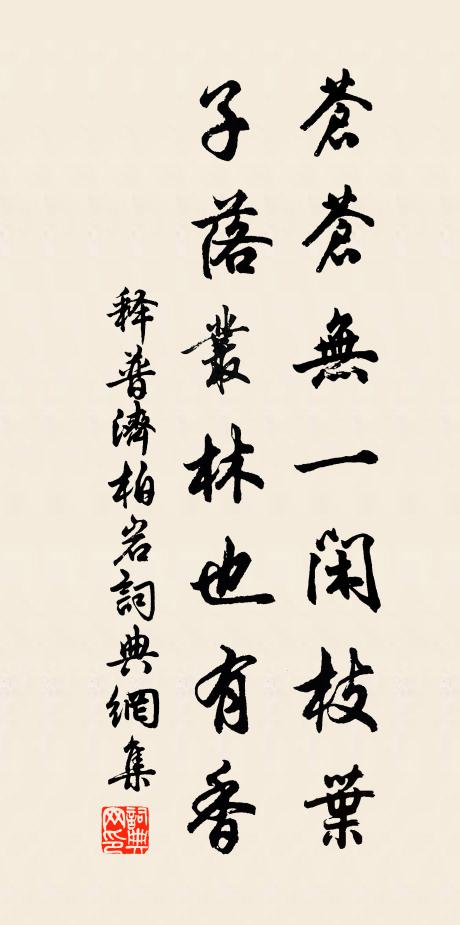 蒼蒼無一閑枝葉
子落叢林也有香
释普濟柏岩詞典網集
詞典网印